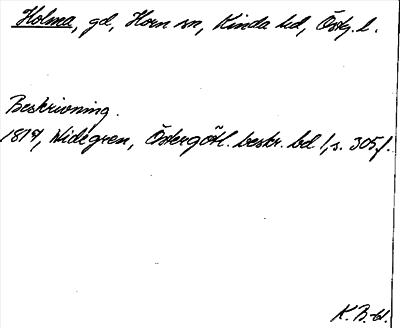 Holma, gd, Horn sn, Kinda hd, Östg. l.
Beskrivning.
1817, Widegren, Östergötl. beskr. bd 1, s. 305 f.
K. B-61.